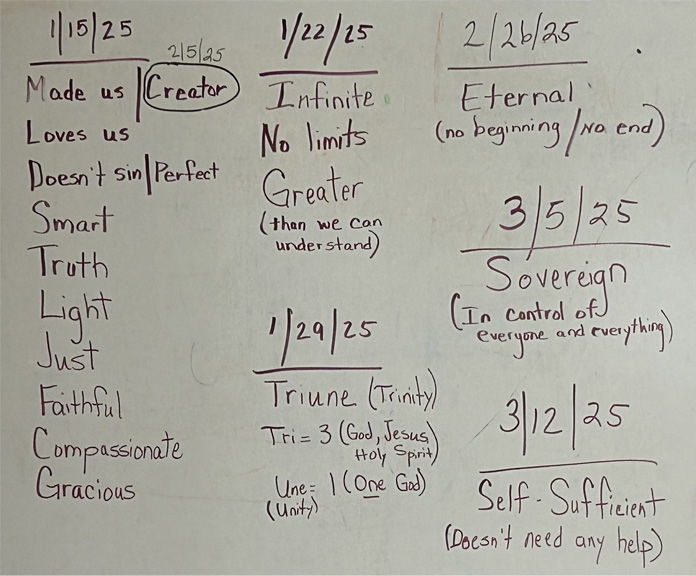 1/15/25
2/5/25
Made us | Creator
Loves us
Doesn't sin | Perfect
Smart
Truth
Light
Just
Faithful
Compassionate
Gracious
1/22/25
Infinite
No limits
Greater
(than we can
understand)
1/29/25
Triune (Trinity)
Tri = 3 (God, Jesus,
Holy Spirit)
Une = 1 (One God)
(Unity)
2/26/25
Eternal
(no beginning / No end)
3/5/25
Sovereign
(In control of
everyone and everything)
3/12/25
Self-Sufficient
(Doesn't need any help)